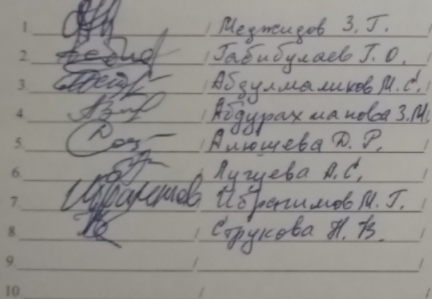 1 / Меджидов З. Г.
2 / Габибулаев Г. О.
3 / Абдулмаликов М. С.
4 / Абдурахманова З. М.
5 / Алюшева Д. Р.
6 / Лугуева А. С.
7 / Ибрагимов М. Г.
8 / Струкова Н. В.
9 /
10 /